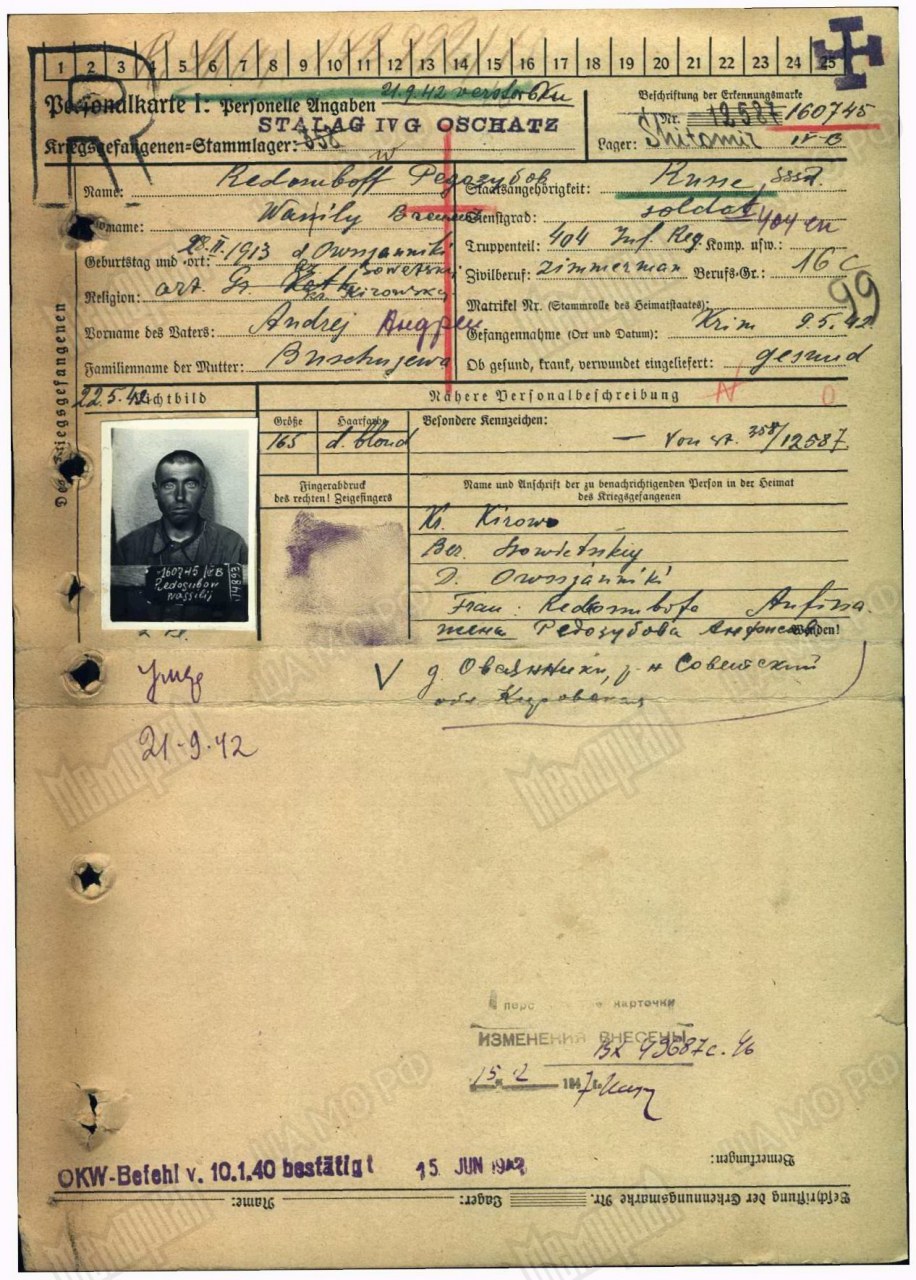 1 2 3 4 5 6 7 8 9 10 11 12 13 14 15 16 17 18 19 20 21 22 23 24 25
R
Personalkarte I: Personelle Angaben
21.9.42 verstorben
STALAG IV G OSCHATZ
Kriegsgefangenen=Stammlager: 358
Beschriftung der Erkennungsmarke
Nr. 12587 160745
Lager: Shitomir IV-B
Des Kriegsgefangenen
Name: Redosuboff
Vorname: Wasily
Geburtstag und =ort: 28.II.1913 d. Owssjanniki
Sowetskij
Religion: ort. Gr. Kath.
Kirowskaj
Vorname des Vaters: Andrej Андрей
Familienname der Mutter: Buschujewa
Staatsangehörigkeit: Russe
Dienstgrad: soldat
404
Truppenteil: 404 Inf. Reg. Komp. usw.:
Zivilberuf: Zimmerman Berufs-Gr.: 16 c
99
Matrikel Nr. (Stammrolle des Heimatstaates):
Gefangennahme (Ort und Datum): Krim 9.5.42
Ob gesund, krank, verwundet eingeliefert: gesund
22.5.42
Lichtbild
Nähere Personalbeschreibung
Größe
Haarfarbe
Besondere Kennzeichen:
165
d. blond
— Von st. 358/12587.
Fingerabdruck
des rechten! Zeigefingers
Name und Anschrift der zu benachrichtigenden Person in der Heimat
des Kriegsgefangenen
160745 IV B
Redosubow
Wassilij
Kr. Kirowo
Ber. Sowietskiy
D. Owssjanniki
Frau: Redosubofa Anfisa.
жена Редозубова Анфиса
Wenden!
V д. Овсянники, р-н Советский
обл Кировская
21-9-42
карточки
ИЗМЕНЕНИЯ ВНЕСЕНЫ
Вх 49687с. 46
15. 2 1947 г.
OKW-Befehl v. 10.1.40 bestätigt 15. JUN 1942
Bemerkungen:
Beschriftung der Erkennungsmarke Nr. Lager: Name:
Мемориал
ЦАМО РФ